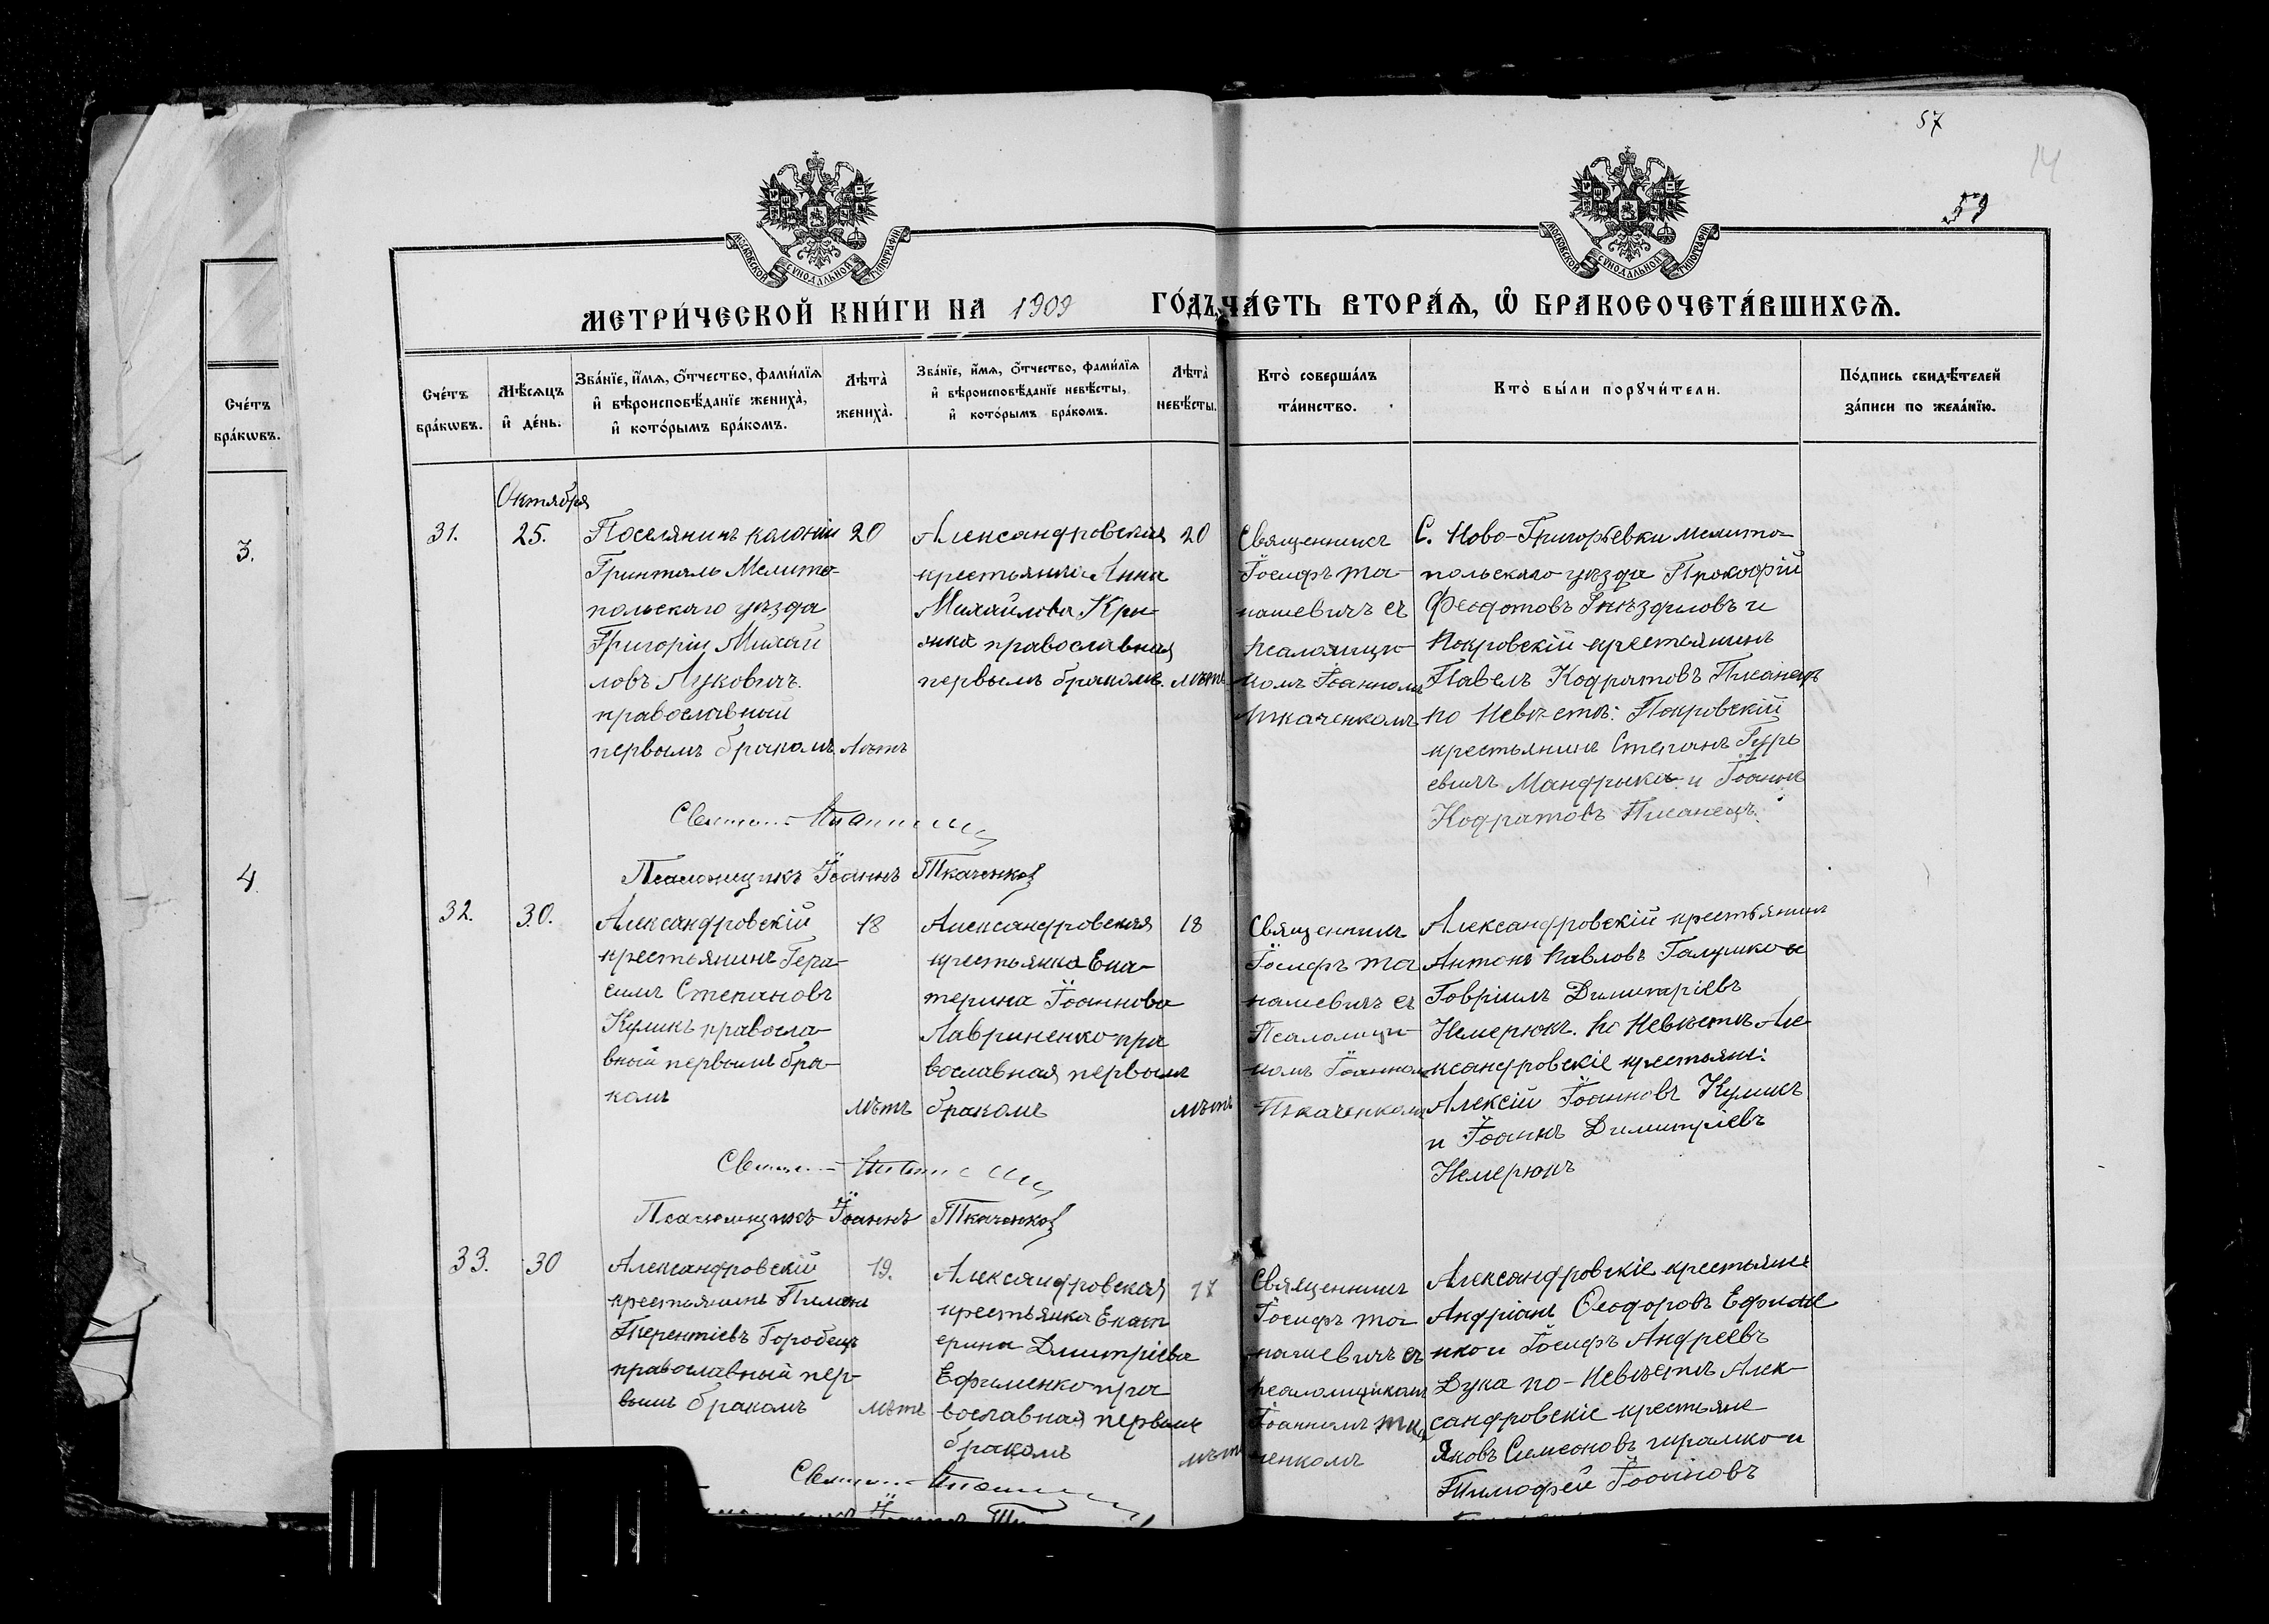 57
14
59
МОСКОВСКОЙ СУНОДАЛЬНОЙ ТИПОГРАФІИ
МОСКОВСКОЙ СУНОДАЛЬНОЙ ТИПОГРАФІИ
МЕТРИ́ЧЕСКОЙ КНИ́ГИ НА 1909 ГО́ДЪ, ЧА́СТЬ ВТОРА́Я, Ѡ҆ БРАКОСОЧЕТА́ВШИХСЯ.
Сче́тъ
бра́кѡвъ.
3.
4
Сче́тъ
бра́кѡвъ.
Мѣ́сяцъ
и҆ де́нь.
Зва́нїе, и҆́мя, ѻ҆́тчество, фами́лїя
и҆ вѣроисповѣ́данїе жениха̀,
и҆ кото́рымъ бра́комъ.
Лѣта̀
жениха̀.
Зва́нїе, и҆́мя, ѻ҆́тчество, фами́лїя
и҆ вѣроисповѣ́данїе невѣ́сты,
и҆ кото́рымъ бра́комъ.
Лѣта̀
невѣ́сты.
Кто̀ соверша́лъ
та́инство.
Кто̀ бы́ли порꙋчи́тели.
По́дпись свидѣ́телей
за́писи по жела́нїю.
Октября
31.
25.
Поселянинъ колоніи
Гринталь Мелито-
польскаго уѣзда
Григорій Михай
ловъ Лукович.
православный
первымъ бракомъ
20
Лѣтъ
Александровская
крестьянка Анна
Михайлова Кри-
православная
первымъ бракомъ.
20
лѣтъ
Священникъ
Іосифъ та-
нашевичъ съ
псаломщи-
комъ Іоанномъ
Ткаченкомъ
С. Ново-Григорьевки мелито-
польскаго уѣзда Прокофій
Феодотовъ Гнѣздиловъ и
Покровскій крестьянинъ
Павелъ Кодратовъ Писанецъ
по невѣстѣ: Покровскій
крестьянинъ Степанъ Гурь
евичъ Мандрыка и Іоаннъ
Кодратовъ Писанецъ.
Псаломщикъ Іоаннъ Ткаченко
32.
30.
Александровскій
крестьянинъ Гера-
симъ Степановъ
Куликъ правосла-
вный первымъ бра-
комъ
18
лѣтъ
Александровская
крестьянка Ека-
терина Іоаннова
Лавриненко пра
вославная первымъ
бракомъ
18
лѣтъ
Священникъ
Іосифъ та
нашевичъ съ
Псаломщи-
комъ Іоанномъ
Ткаченкомъ
Александровскій крестьянинъ
Антонъ Павловъ Галушко и
Говріилъ Димитріевъ
Немерюкъ. По невѣстѣ Але
ксандровскіе крестьяне:
Алексій Іоанновъ Куликъ
и Іоаннъ Димитріевъ
Немерюкъ
Псаломщикъ Іоаннъ Ткаченко
33.
30
Александровскій
крестьянинъ Пименъ
Терентіевъ Горобецъ
православный пер-
вымъ бракомъ
19.
лѣтъ
Александровская
крестьянка Екат
ерина Дмитріева
Ефименко пра
вославная первымъ
бракомъ
лѣтъ
Священникъ
Іосифъ та-
нашевичъ съ
псаломщикомъ
Іоанномъ Тка
ченкомъ
Александровскіе крестьяне
Андріанъ Ѳеодоровъ Ефиме
нко и Іосифъ Андреевъ
Дука по-невѣстѣ Алек-
сандровскіе крестьяне
Яковъ Симеоновъ и
Тимофей Іоанновъ